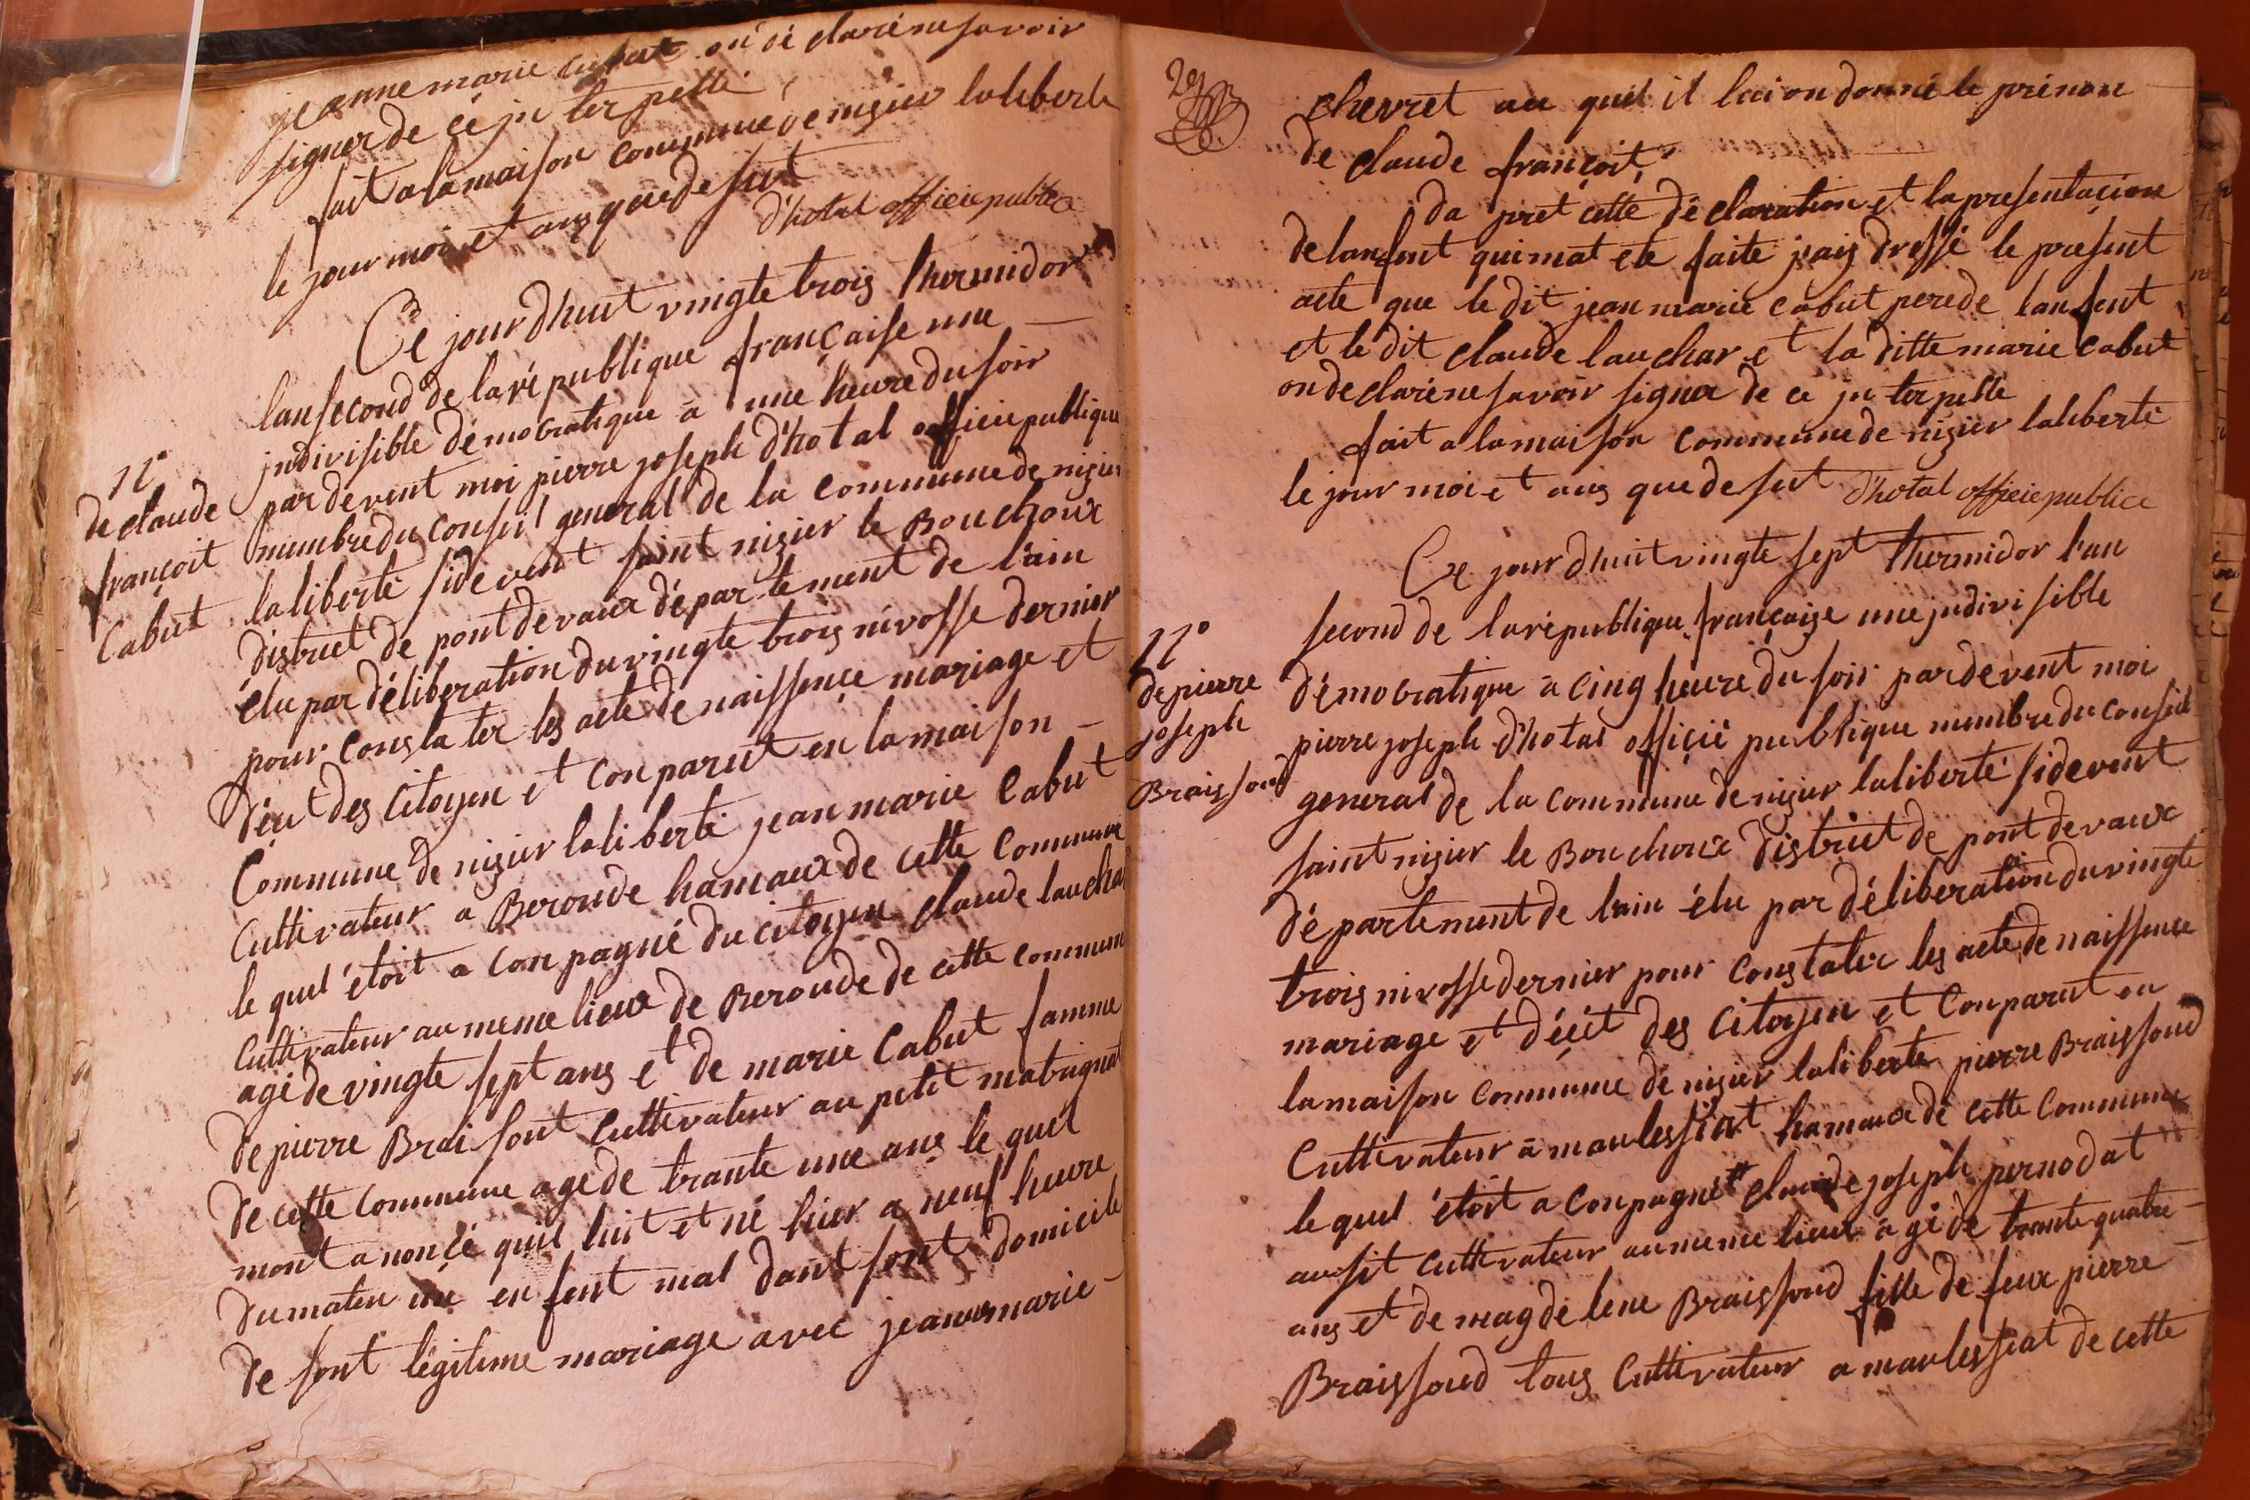 jeanne marie cabut on dé claré ne savoir
signer de cé jn ter pellé
fait a la maison commune de nizier la liberte
le jour moi et ans que de sut
d'hotal officie public
Ce jour d'huit vingte trois thermidor
lan second de la ré publique française une
jndivisible démocratique à une heure du soir
par de vent moi pierre joseph d'hotal officie publique
mumbre du conseil general de la commune de nizier
la liberté side vent saint nizier le Bouchoux
district de pont de vaux dé par te ment de l'ain
élu par déliberation du vingte trois nivosse dernier
pour consta ter les acte de naissençe mariage et
déçut des citoyen et conparut en la maison
Commune de nizier la liberté jean marie Cabut
Cultivateur a Beroude hamaux de cette Commune
le quel étoit a conpagné du citoyen claude lauchar
Cultivateur au meme lieux de Beroude de cette commune
agé de vingte sept ans et de marie Cabut famme
de pierre Brai sont Cultivateur au petit matrignat
de cette commune age de trante une ans le quel
mont a noncé quil luit et né hier a neuf heure
du maten un en fent mal dant sont domicile
de sont légitime mariage avec jeanne marie
11°
de claude
françoit
Cabut
29
chevret au quel il lui on donné le prénom
de claude françoit
da pret cette dé claration et la presentaçion
de lanfent qui mat ete faite jais dressé le present
acte que le dit jean marie cabut pere de lanfent
et le dit claude lauchar et la ditte marie cabut
on de claré ne savoir signer de ce jn ter pellé
fait a la maison commune de nizier la liberté
le jour moi et ans que de sut d'hotal officie publice
Ce jour d'huit vingte sept thermidor l'an
second de la république française une jndivi sible
démocratique à cinq heure du soir par de vent moi
pierre joseph d'hotal officié publique mumbre du conseil
general de la commune de nizier la liberté side vent
saint nizier le Bouchoux district de pont de vaux
dé partement de l'ain élu par déliberation du vingte
trois nivosse dernier pour constater les acte de naissence
mariage et déçit des citoyen et conparut en
la maison commune de nizier la liberté pierre Braissoud
Cultivateur à maulessiat hamaux de cette commune
le quel étoit a conpagné claude joseph pernodat
aussit cultivateur au meme lieux agé de trante quatre
ans et de magdelene Braissoud fille de feux pierre
Braissoud tous Cultivateur a maulessiat de cette
11°
de pierre
joseph
Braissoud